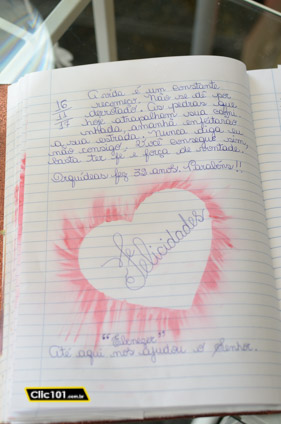 A vida é um constante
16 recomeço. Não se dê por
11 derrotado. As pedras que
17 hoje atrapalham sua cami
nhada, amanhã enfeitarão
a sua estrada. Nunca diga eu
não consigo. Você consegue sim,
basta ter fé e força de vontade.
Orquídeas fez 32 anos. Parabéns!!
Felicidades
"Ebenezer"
Até aqui nos ajudou o Senhor.
Clic101.com.br